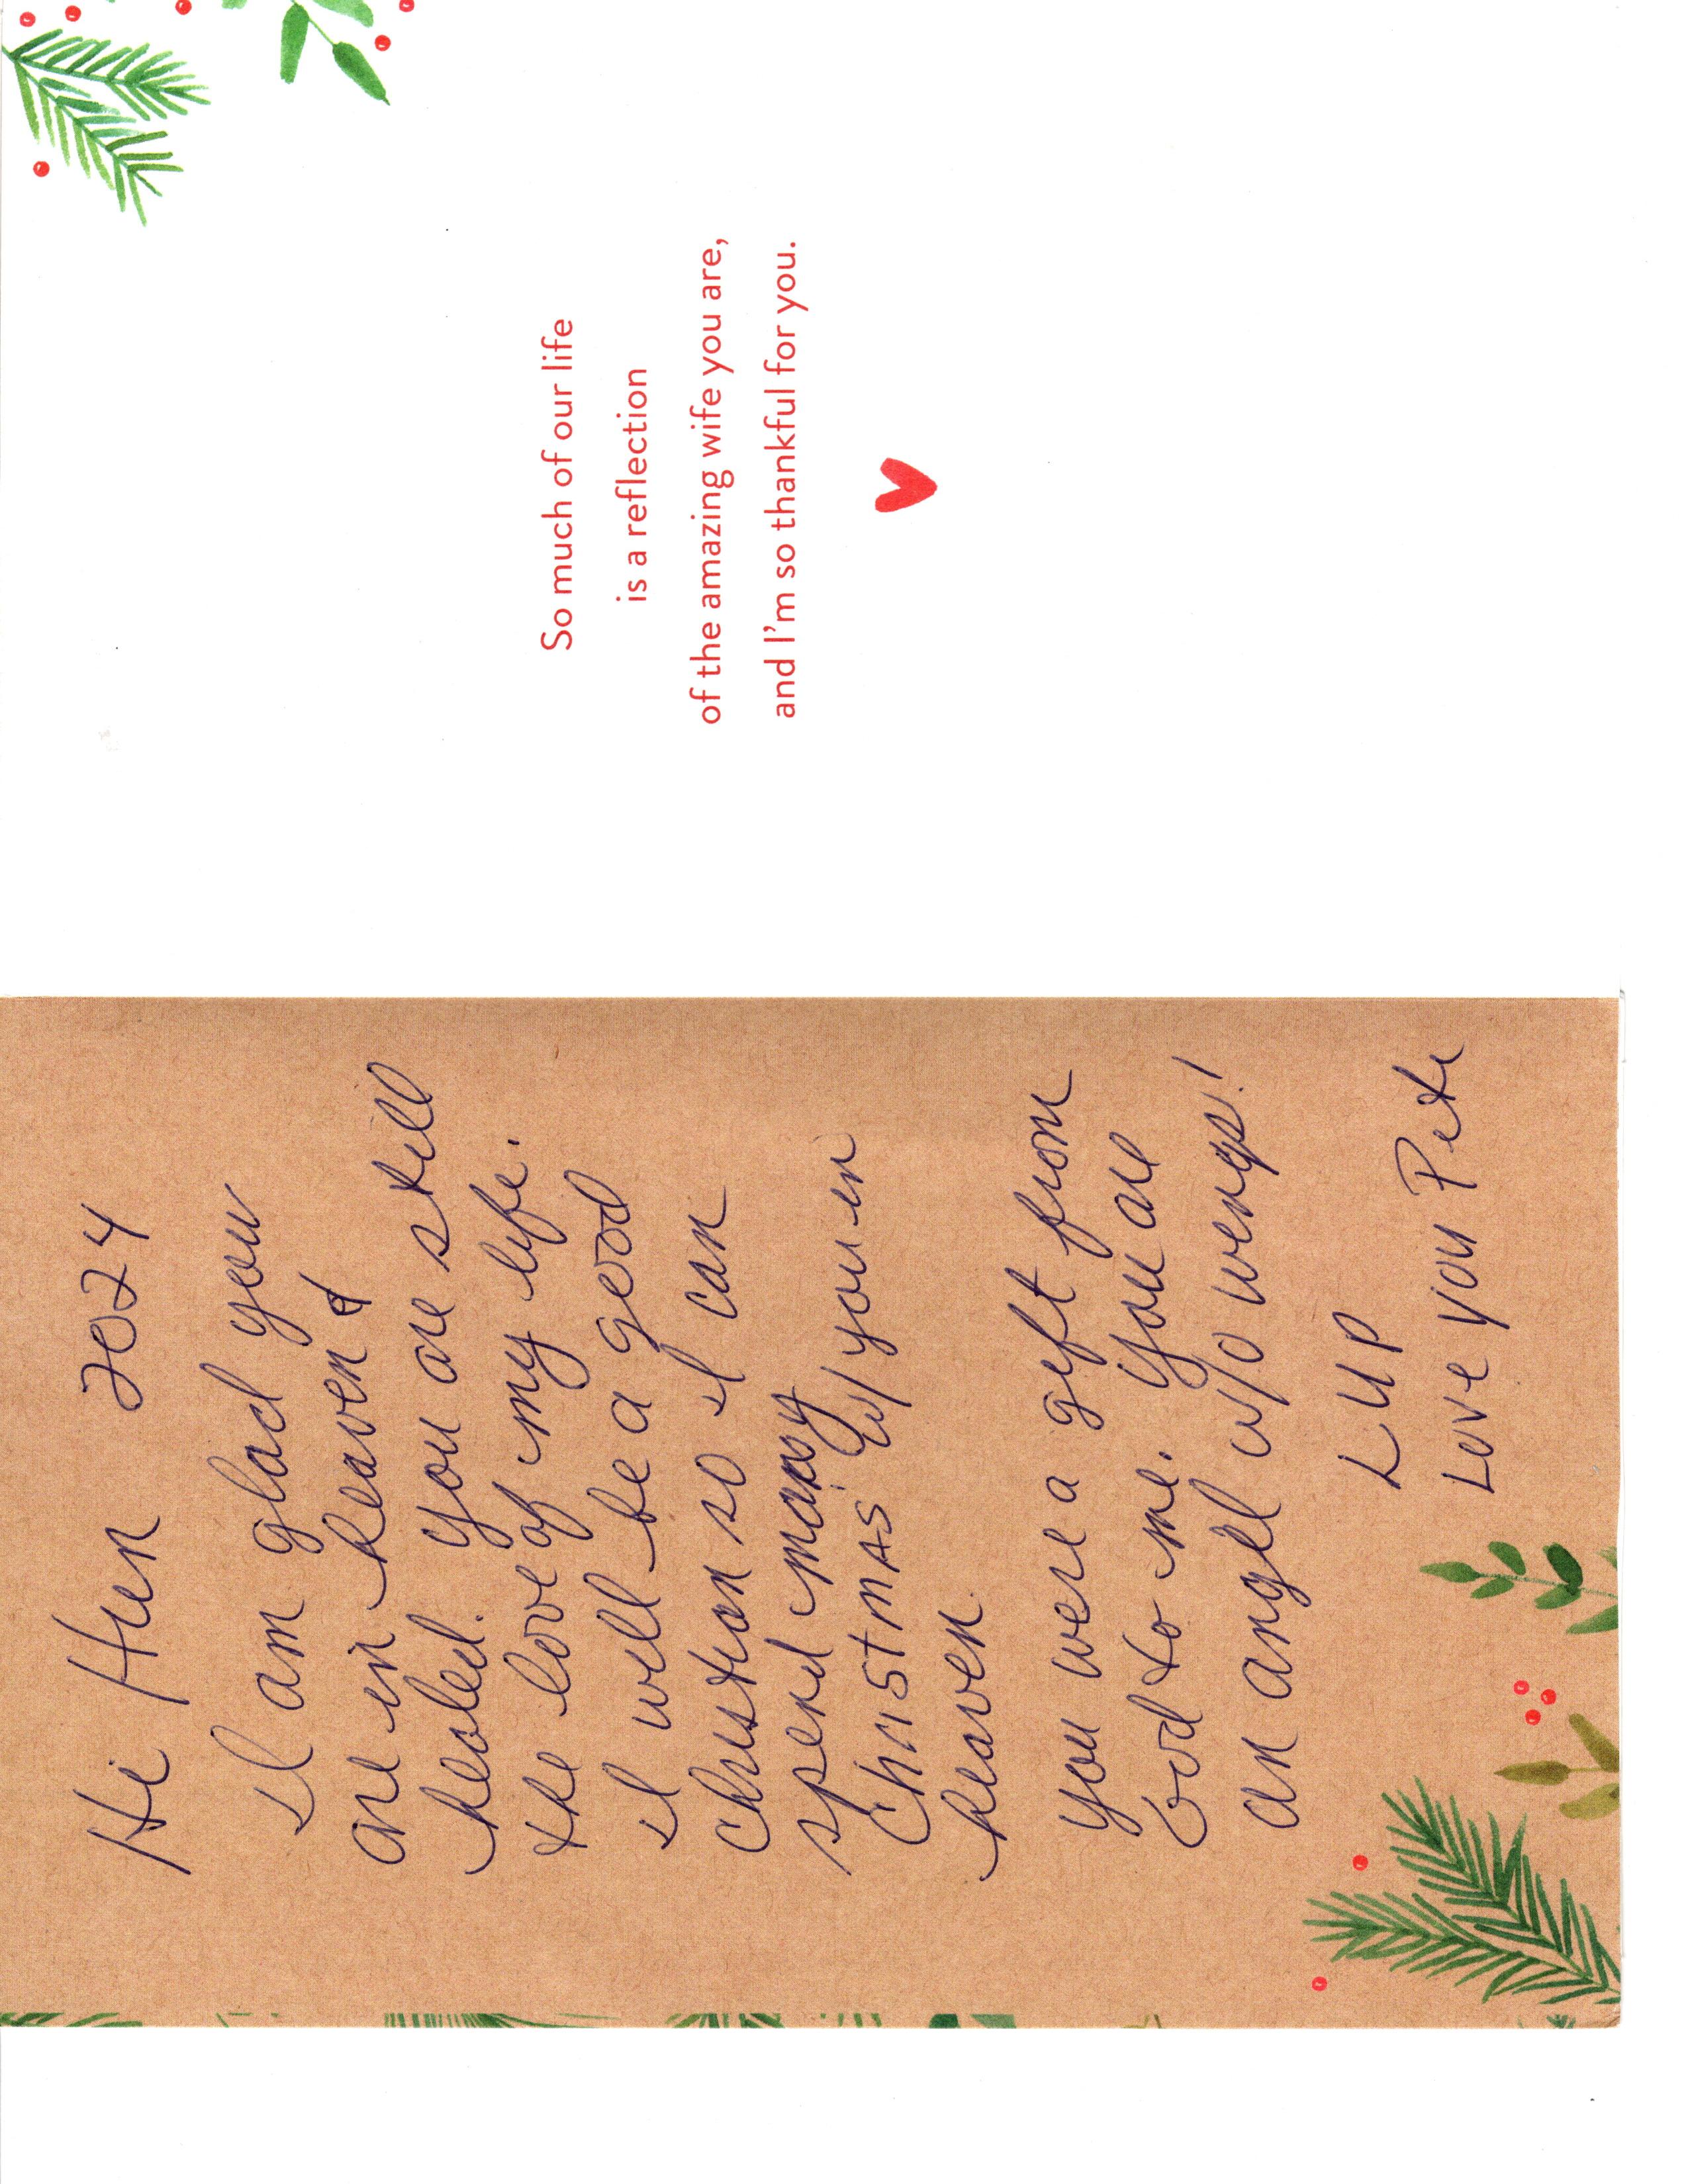 Hi Hun 2024
I am glad you
are in heaven &
healed. You are still
the love of my life.
I will be a good
christian so I can
spend many
Christmas w/ you in
heaven.
You were a gift from
God to me. You are
an angel w/o wings!
LUP
Love you Pete
So much of our life
is a reflection
of the amazing wife you are,
and I'm so thankful for you.